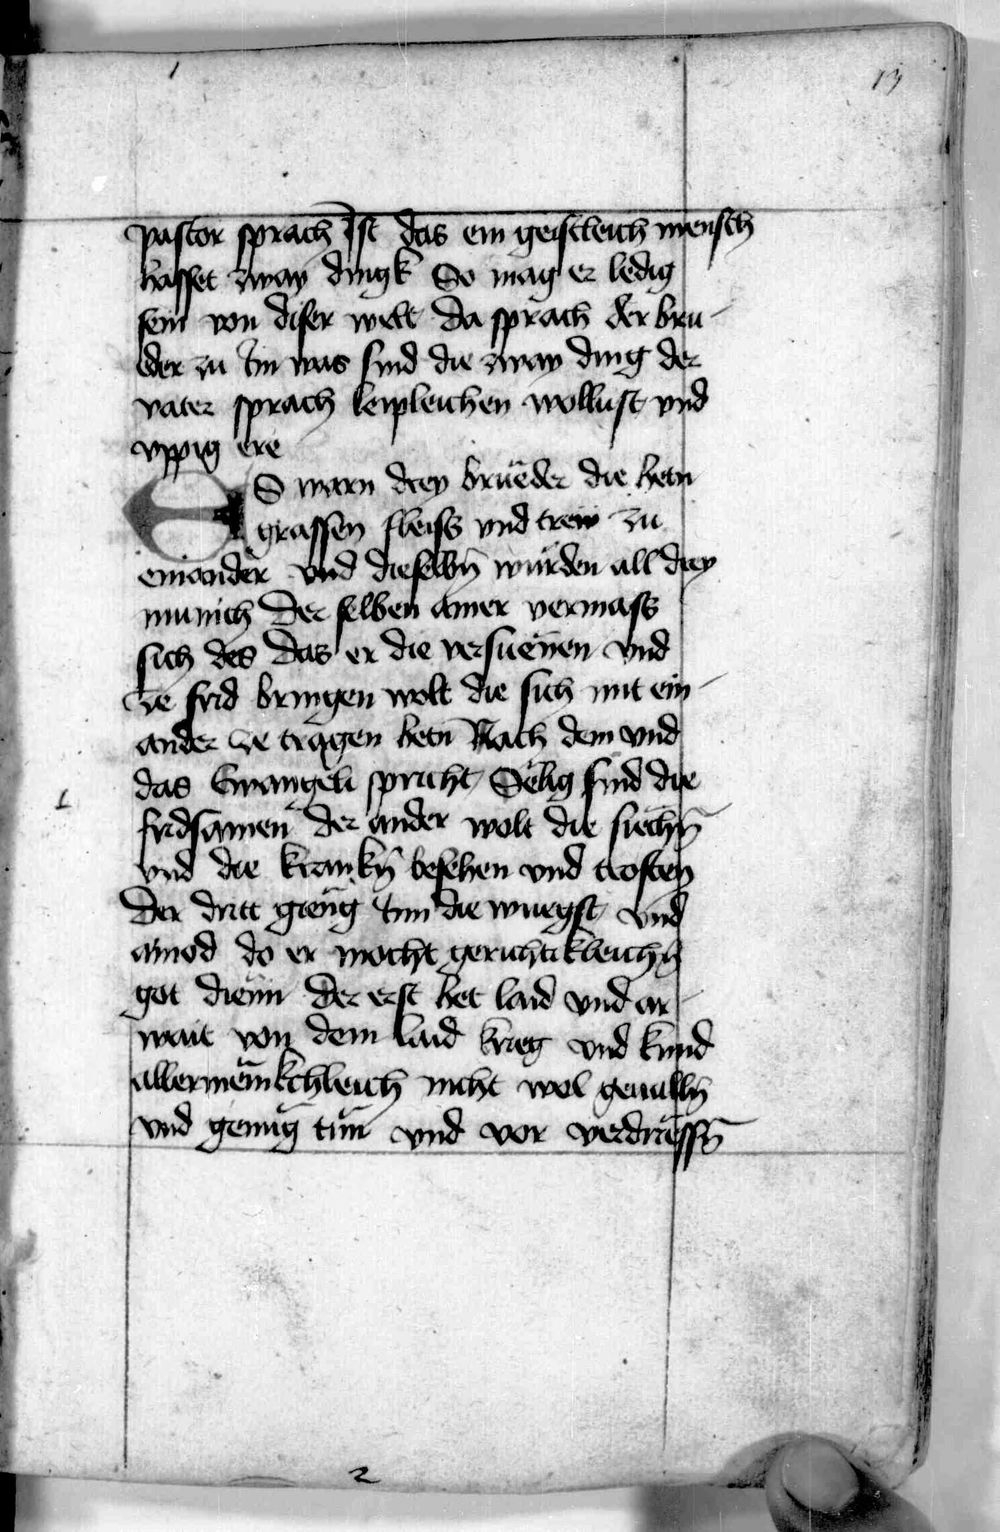 1
13
pastor sprach Ist das ein geistleich mensch
hasset zway dingk So mag er ledig
sein von diser welt Da sprach der bru-
der zu Im was sind die zway ding der
vater sprach leipleichen wollust vnd
vppig ere
ES warn drey brueder die hetn
grassen fleiss vnd trew zu
einander vnd dieselbn̄ wurden all drey
munich Der selben ainer vermass
sich des das er die versuenen vnd
ze frid bringen wolt die sich mit ein-
ander ze tragen hetn Nach dem vnd
das Ewangeli spricht Sëlig sind die
fridsamen der ander wolt die siechn̄
vnd die krankn̄ besehen vnd trosten
Der dritt gieng Inn die wuegst vnd
ainod do er mocht gerichtikleichn̄
got dienn Der erst het laid vnd ar-
wait von dem laid krieg vnd kund
allermeinkchleich nicht wol geualln̄
vnd genug tun vnd vor verdriessn̄
2